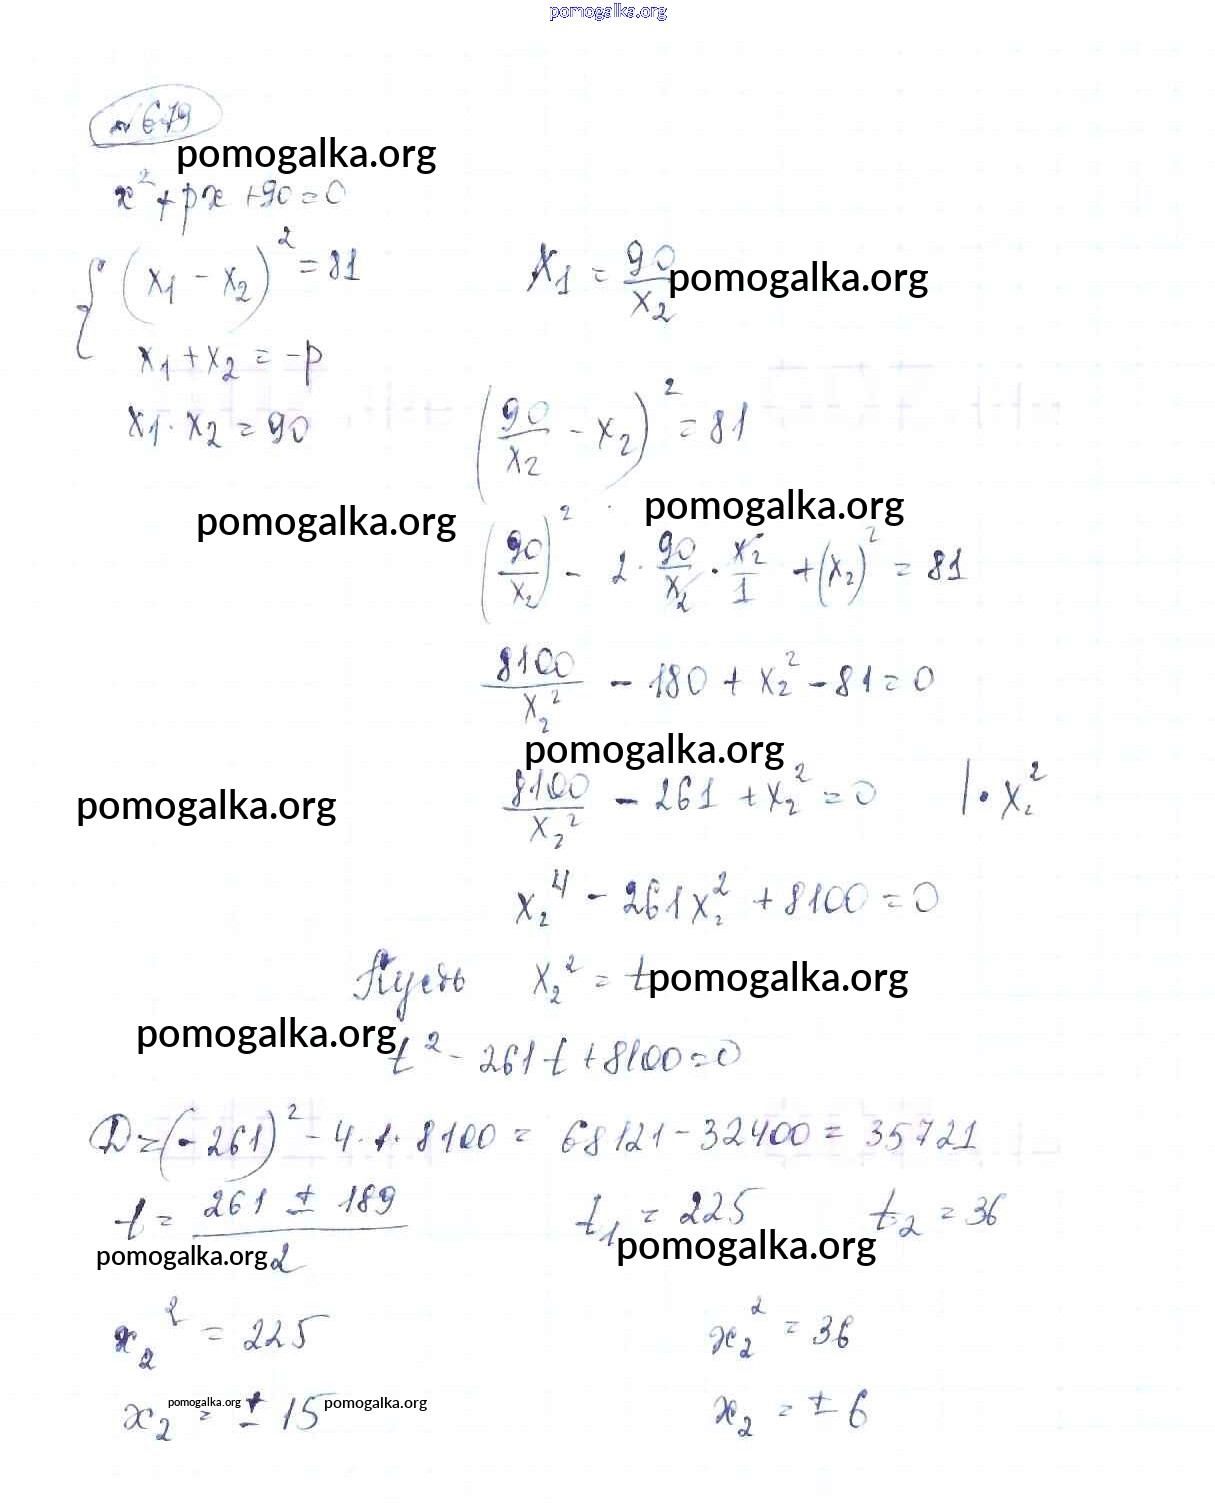 pomogalka.org
№ 679
pomogalka.org
x² + px + 90 = 0
{ (x₁ - x₂)² = 81
x₁ = 90/x₂
pomogalka.org
x₁ + x₂ = -p
x₁ · x₂ = 90
(90/x₂ - x₂)² = 81
pomogalka.org
pomogalka.org
(90/x₂)² - 2 · 90/x₂ · x₂/1 + (x₂)² = 81
8100/x₂² - 180 + x₂² - 81 = 0
pomogalka.org
pomogalka.org
8100/x₂² - 261 + x₂² = 0 | · x₂²
x₂⁴ - 261x₂² + 8100 = 0
Пусть x₂² = t
pomogalka.org
pomogalka.org
t² - 261t + 8100 = 0
D = (-261)² - 4 · 1 · 8100 = 68121 - 32400 = 35721
t = (261 ± 189)/2
t₁ = 225 t₂ = 36
pomogalka.org
pomogalka.org
x₂² = 225 x₂² = 36
x₂ = ± 15 x₂ = ± 6
pomogalka.org
pomogalka.org